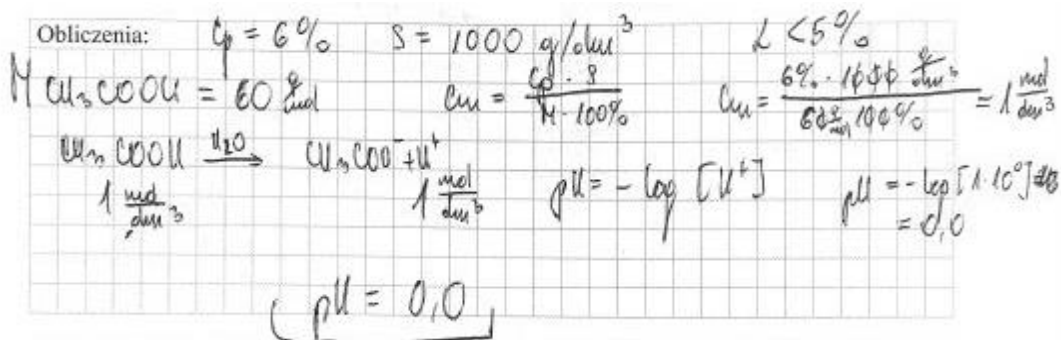 Obliczenia: Cp = 6% S = 1000 g/dm³ α < 5%
M CH₃COOH = 60 g/mol Cm = Cp · S / M · 100% Cm = 6% · 1000 g/dm³ / 60 g/mol 100% = 1 mol/dm³
CH₃COOH H₂O → CH₃COO⁻ + H⁺
1 mol/dm³ 1 mol/dm³ pH = - log [H⁺] pH = - log [1·10⁰] =
= 0,0
pH = 0,0